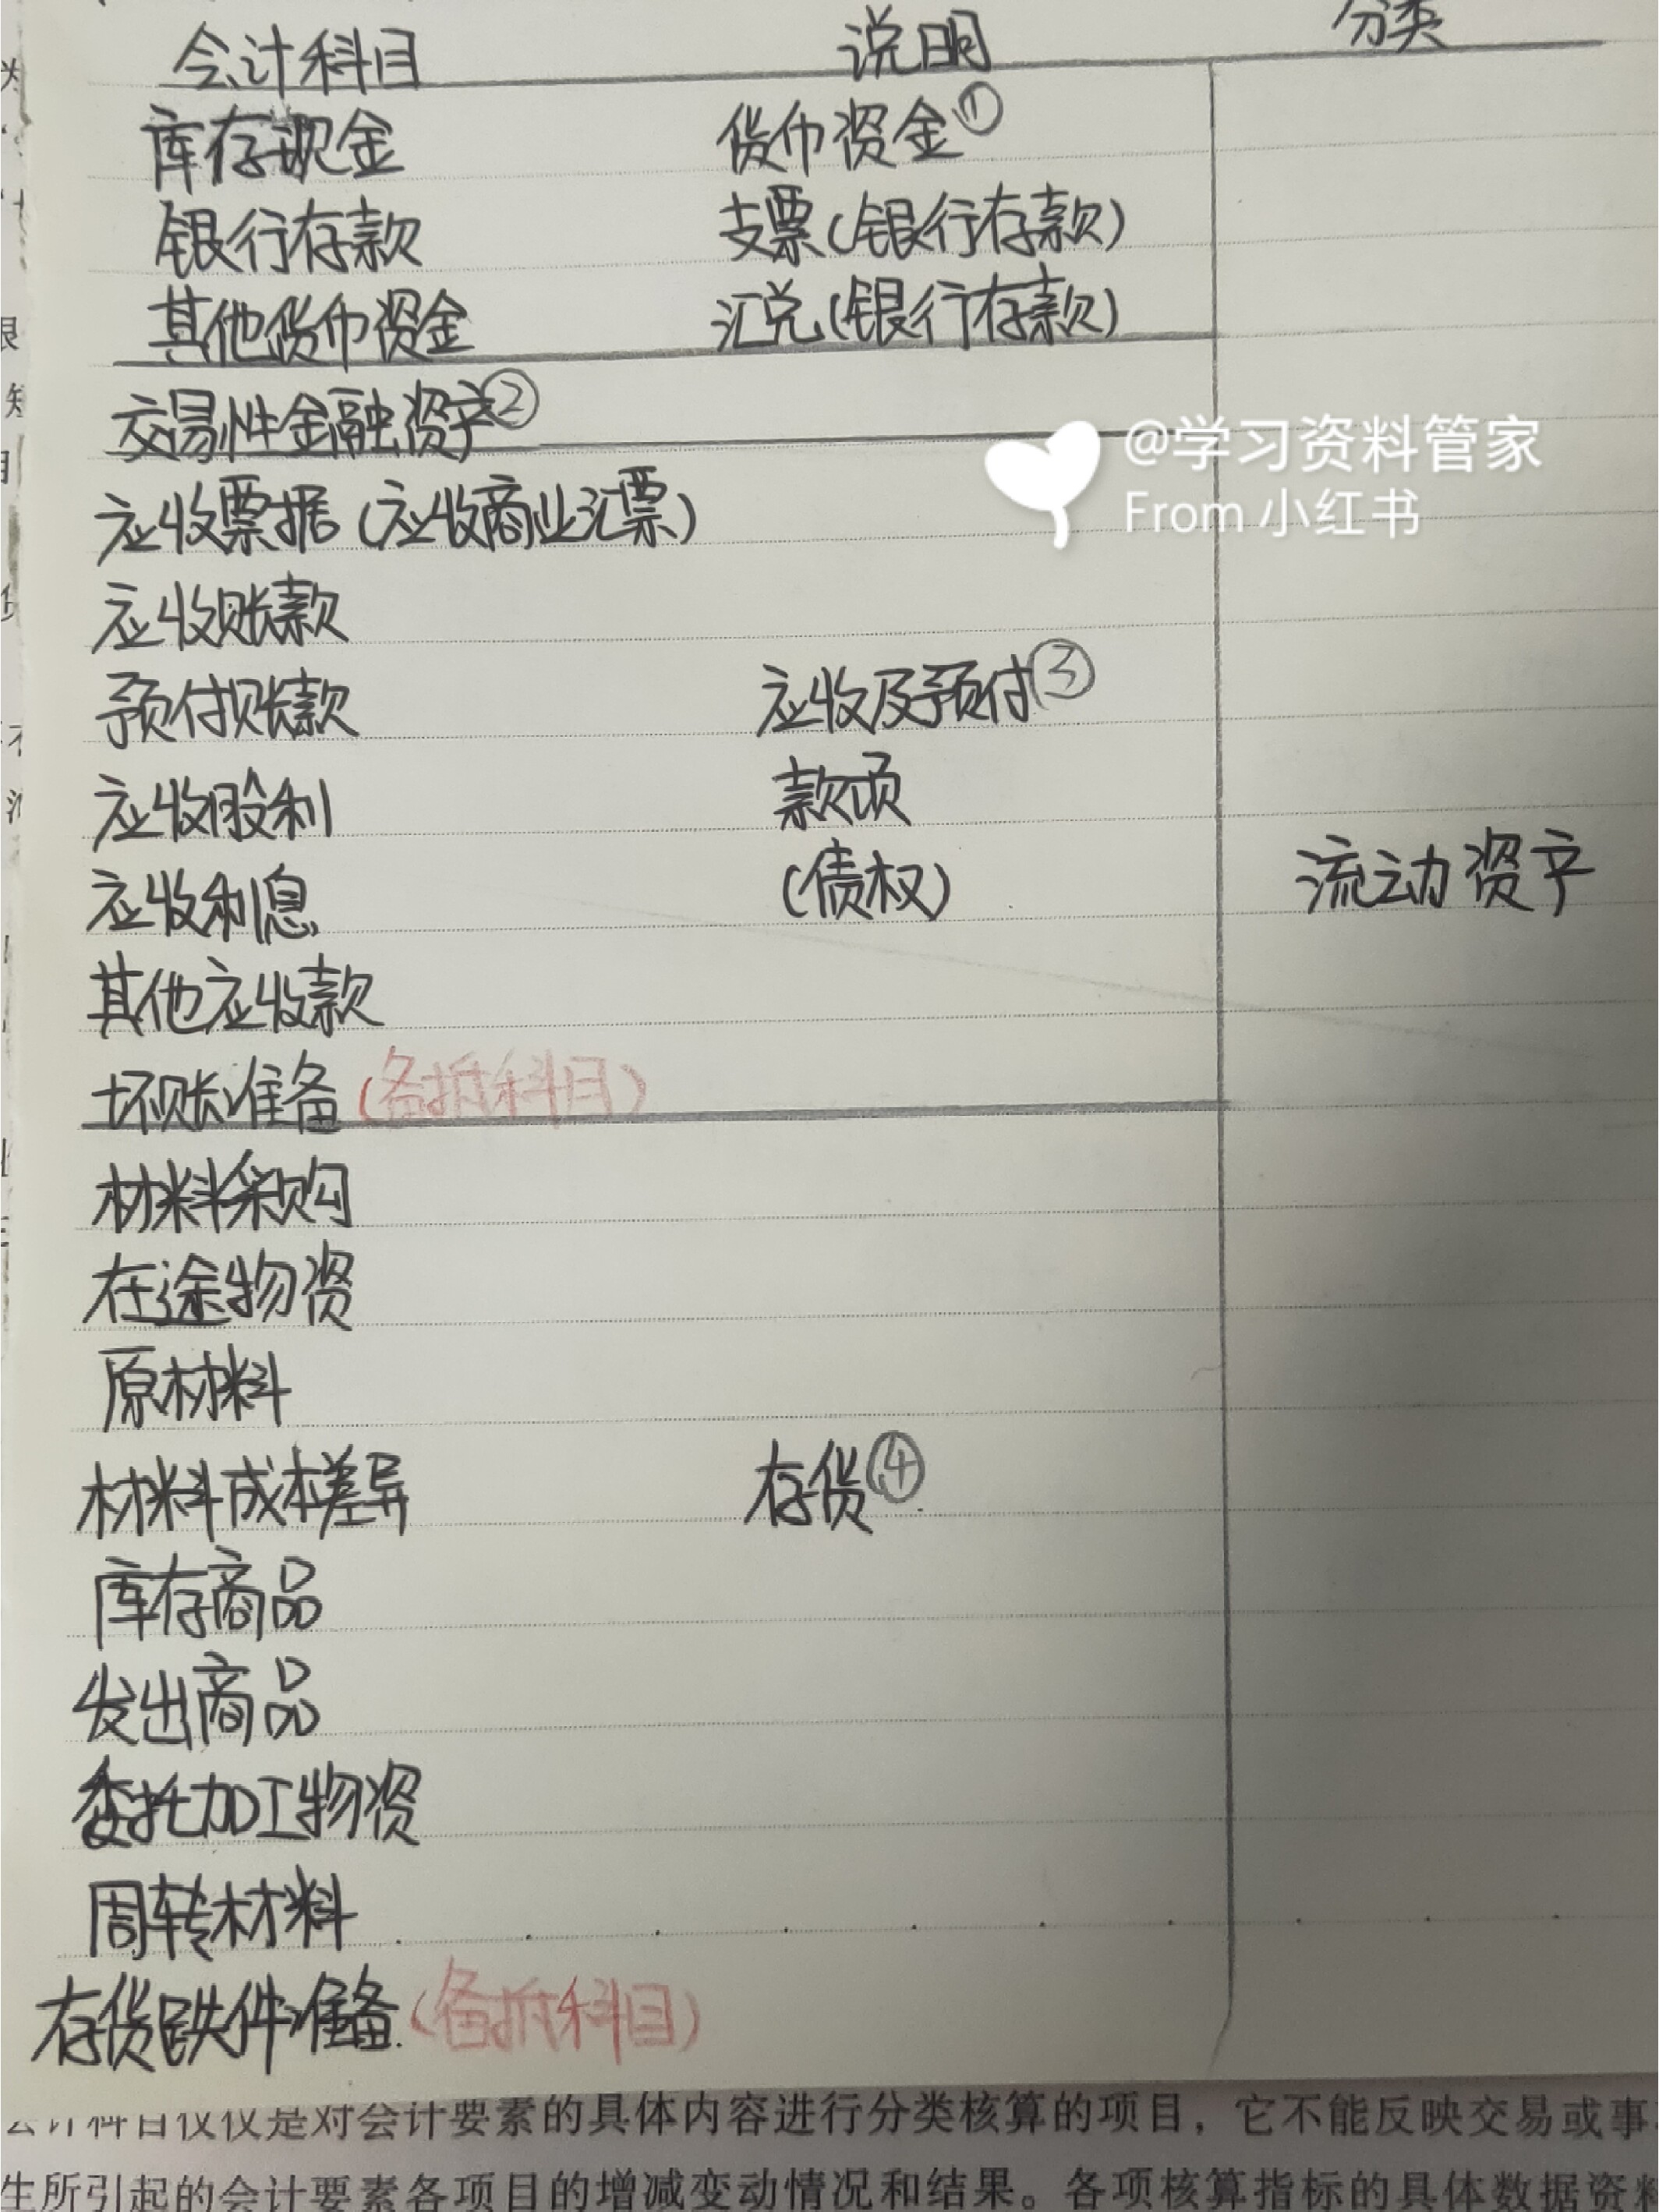 会计科目 说明 分类
库存现金 货币资金①
银行存款 支票(银行存款)
其他货币资金 汇兑(银行存款)
交易性金融资产②
@学习资料管家
From 小红书
应收票据(应收商业汇票)
应收账款
预付账款 应收及预付③
应收股利 款项
应收利息 (债权) 流动资产
其他应收款
坏账准备(备抵科目)
材料采购
在途物资
原材料
材料成本差异 存货④
库存商品
发出商品
委托加工物资
周转材料
存货跌件准备(备抵科目)
会计科目仅仅是对会计要素的具体内容进行分类核算的项目，它不能反映交易或事
生所引起的会计要素各项目的增减变动情况和结果。各项核算指标的具体数据资料